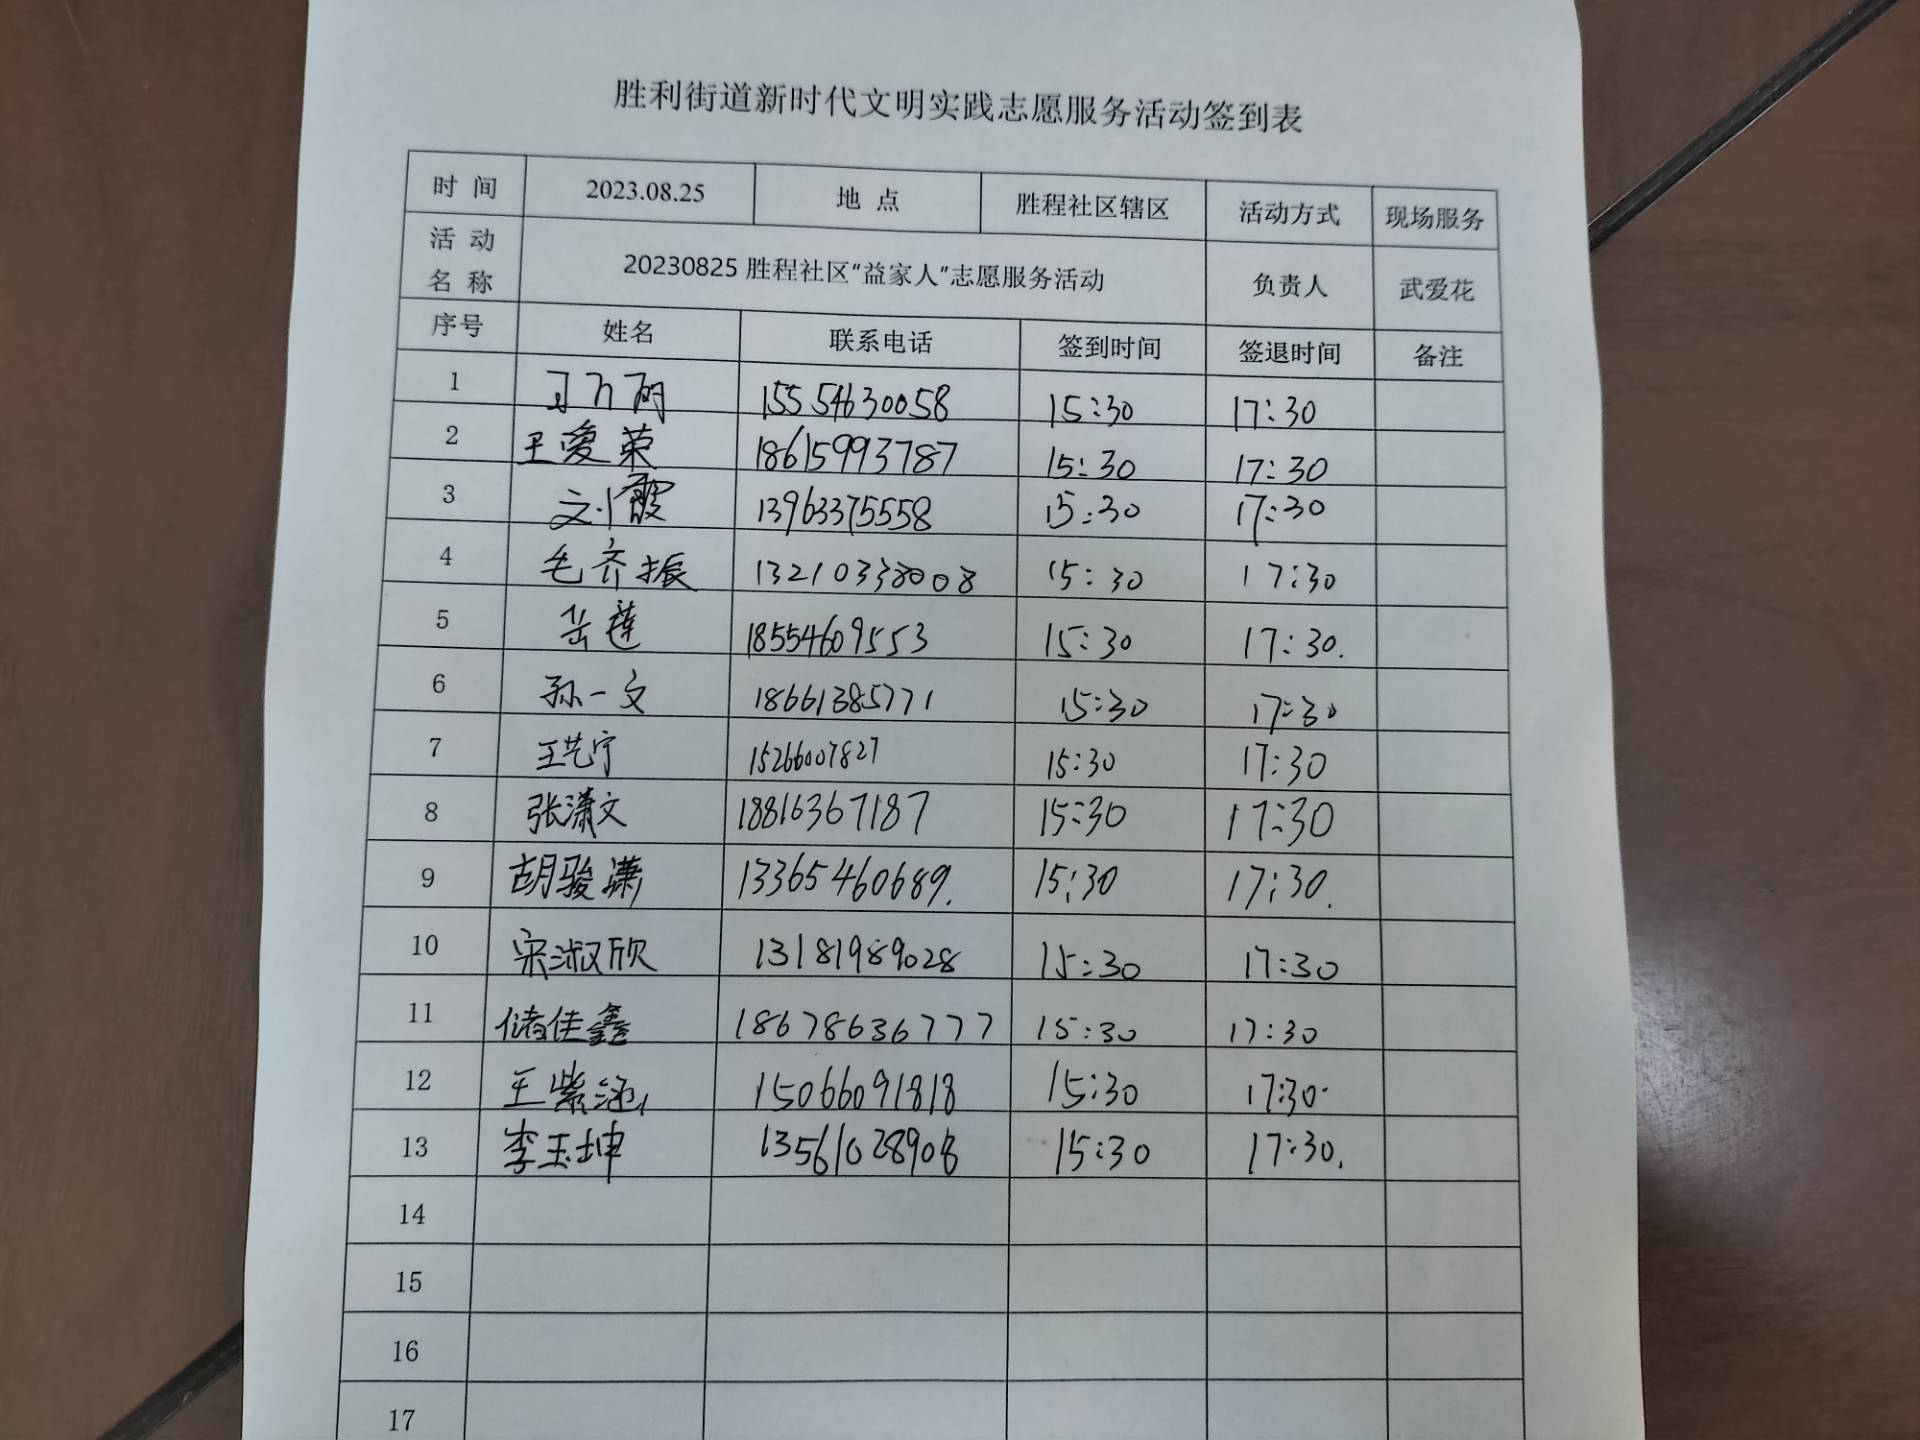 胜利街道新时代文明实践志愿服务活动签到表
时 间 2023.08.25 地 点 胜程社区辖区 活动方式 现场服务
活 动
名 称 20230825胜程社区“益家人”志愿服务活动 负责人 武爱花
序号 姓名 联系电话 签到时间 签退时间 备注
1 15554630058 15:30 17:30
2 王爱荣 18615993787 15:30 17:30
3 刘霞 13963375558 15:30 17:30
4 毛齐振 13210338008 15:30 17:30
5 岳莲 18554609553 15:30 17:30.
6 孙一文 18661385771 15:30 17:30
7 王艺宁 15266007827 15:30 17:30
8 张潇文 18816367187 15:30 17:30
9 胡骏潇 13365460689. 15:30 17:30.
10 宋淑欣 13181989028 15:30 17:30
11 储佳鑫 18678636777 15:30 17:30
12 王紫涵 15066091818 15:30 17:30.
13 李玉坤 13561028908 15:30 17:30.
14
15
16
17